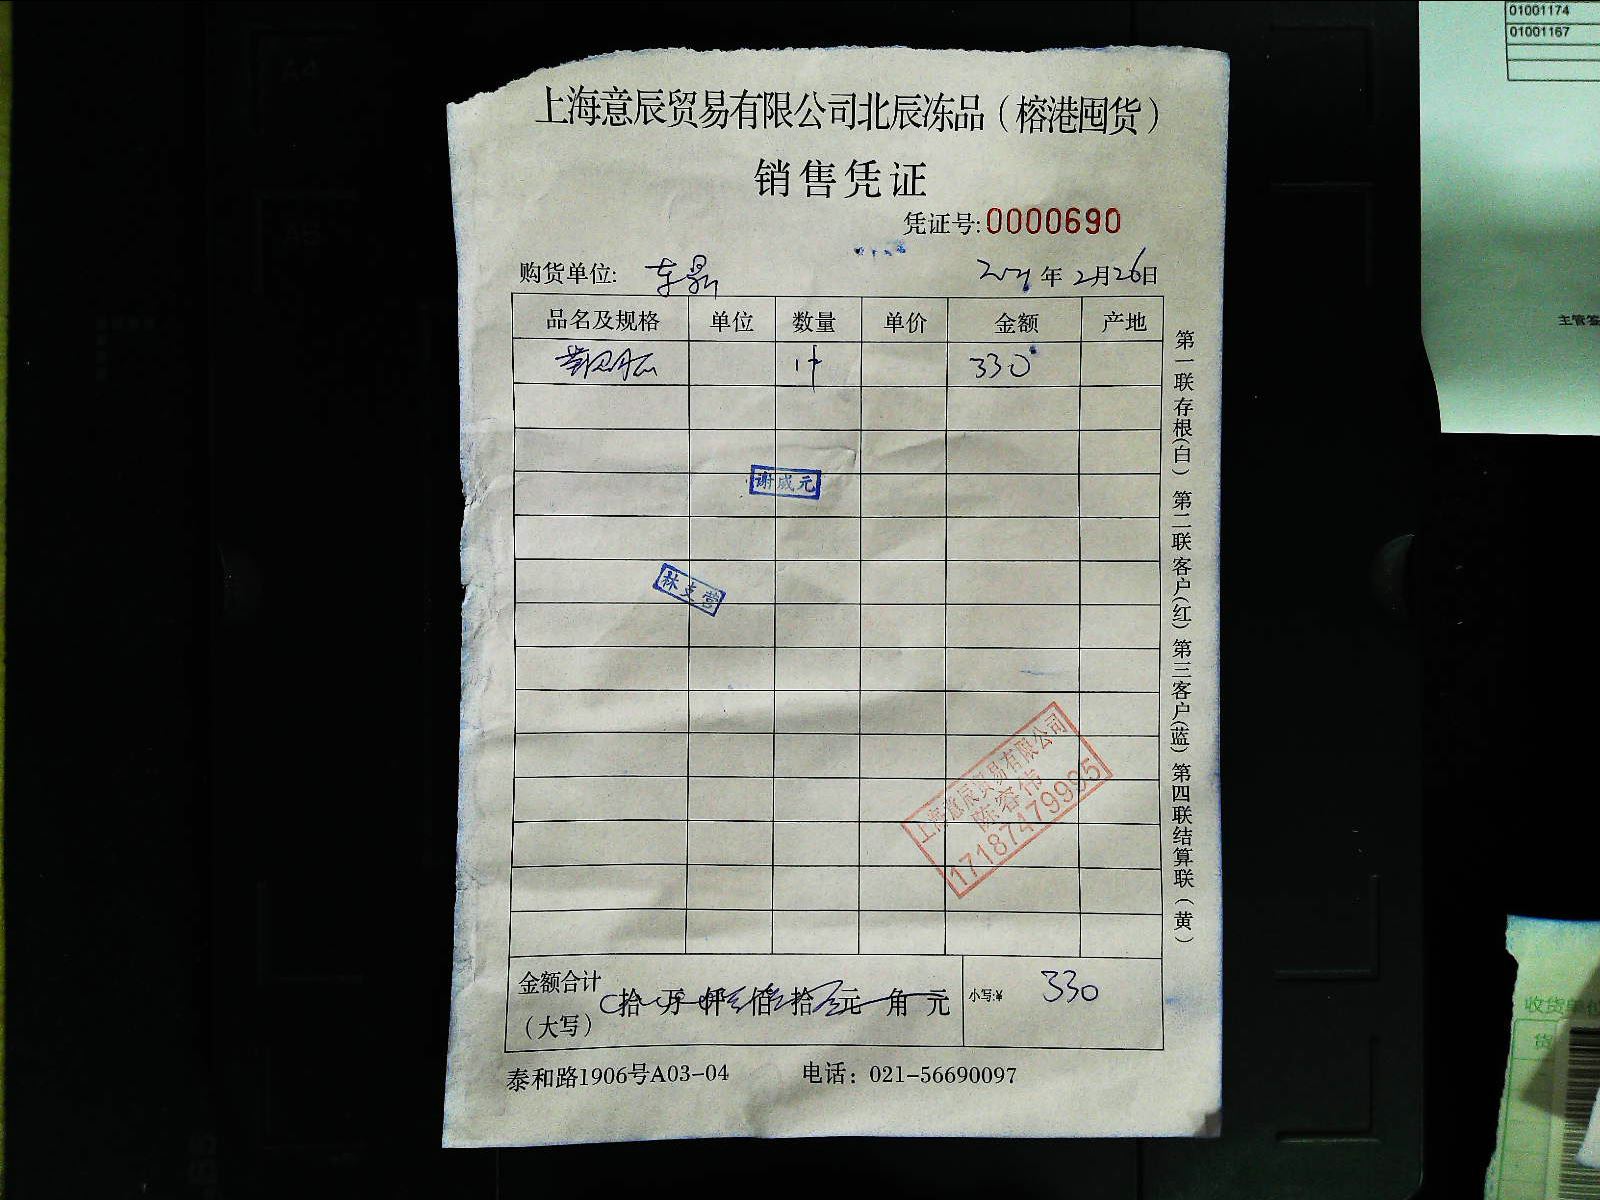 上海意辰贸易有限公司北辰冻品（榕港囤货）
销售凭证
凭证号:0000690
购货单位: 东景 2021年2月26日
品名及规格 单位 数量 单价 金额 产地
1件 330
谢成元
林支营
上海意辰贸易有限公司
陈容伟
17187479995
第一联存根(白) 第二联客户(红) 第三客户(蓝) 第四联结算联(黄)
金额合计
（大写） 拾 万 仟 佰 拾 元 角 元 小写:¥ 330
泰和路1906号A03-04 电话：021-56690097
01001174
01001167
主管签
收货单位
货